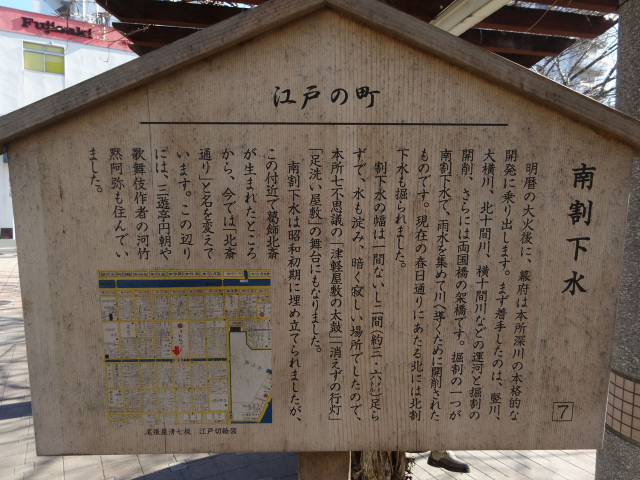 Fujisaki
江戸の町
南割下水
明暦の大火後に、幕府は本所深川の本格的な
開発に乗り出します。まず着手したのは、竪川、
大横川、北十間川、横十間川などの運河と掘割の
開削、さらには両国橋の架橋です。掘割の一つが
南割下水で、雨水を集めて川へ導くために開削された
ものです。現在の春日通りにあたる北には北割
下水も掘られました。
割下水の幅は一間ないし二間(約三・六メートル)足ら
ずで、水も淀み、暗く寂しい場所でしたので、
本所七不思議の「津軽屋敷の太鼓」「消えずの行灯」
「足洗い屋敷」の舞台にもなりました。
南割下水は昭和初期に埋め立てられましたが、
この付近で葛飾北斎
が生まれたところ
から、今では「北斎
通り」と名を変えて
います。この辺り
には、三遊亭円朝や
歌舞伎作者の河竹
黙阿弥も住んでい
ました。
尾張屋清七板 江戸切絵図
7